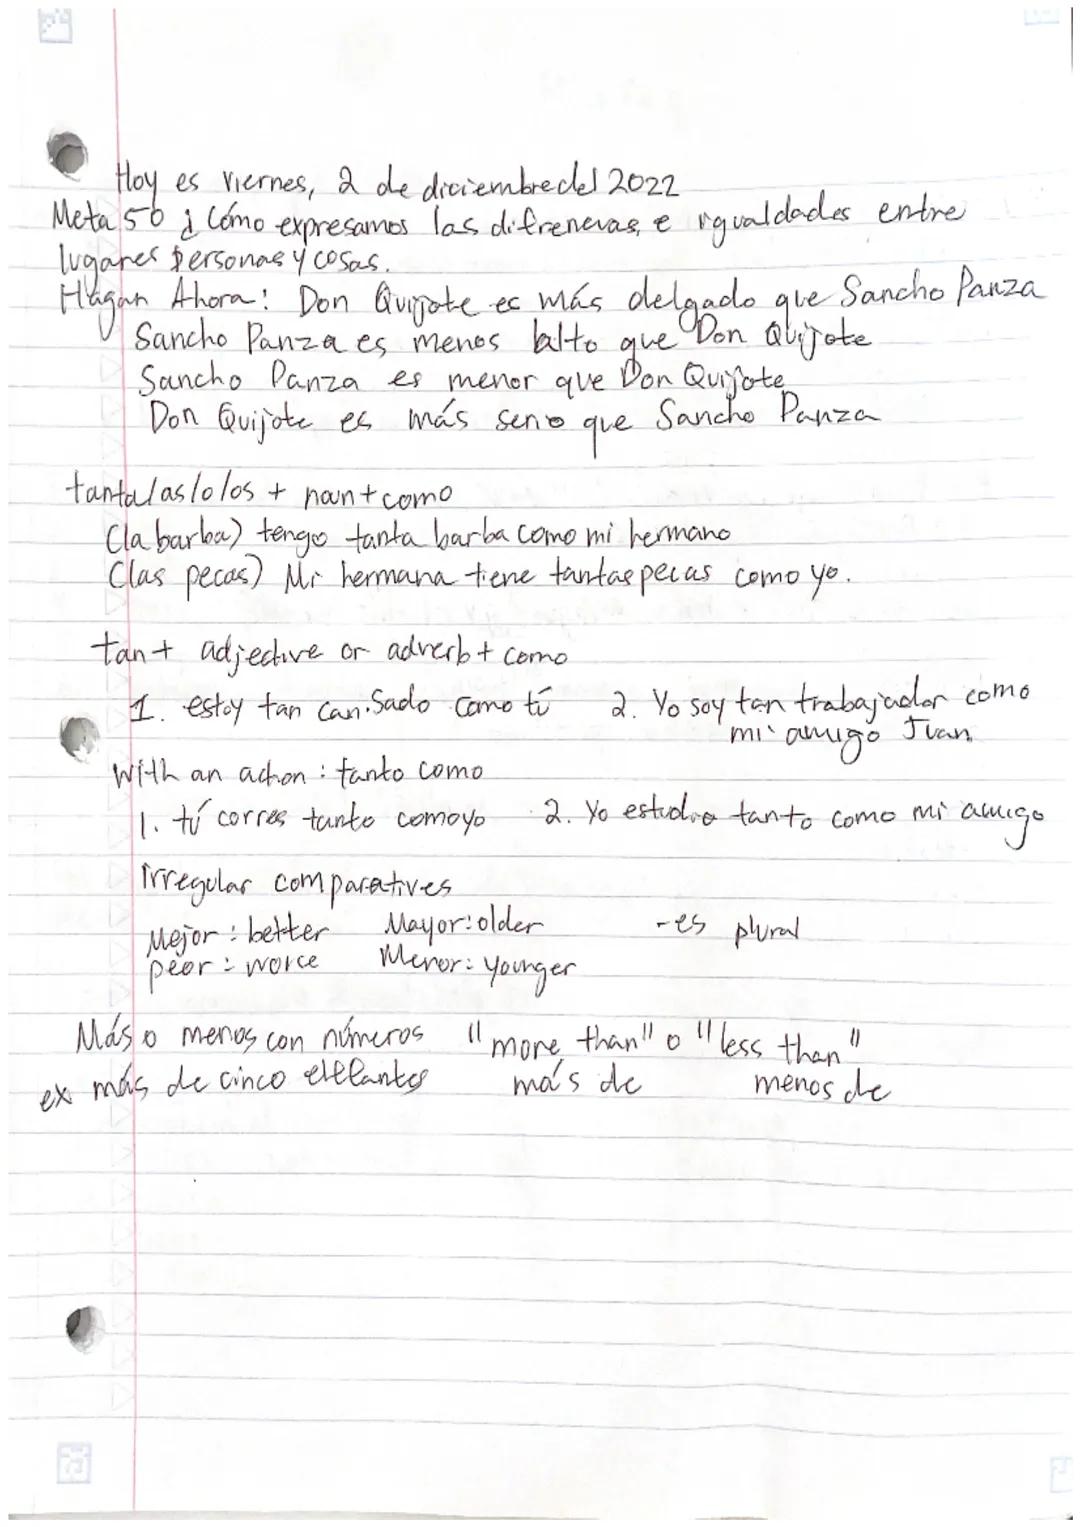 Hoy es viernes, 2 de diciembre del 2022
Meta 56 ¿ Cómo expresamos las difrenevas, e igualdades entre
lugares personas y cosas.
Hagan Ahora: Don Quijote es más delgado que Sancho Panza
Sancho Panza es menos alto que Don Quijote
Sancho Panza es menor que Don Quijote
Don Quijote es más serio que Sancho Panza
tanta/as/o/os + noun + como
(la barba) tengo tanta barba como mi hermano
(las pecas) Mi hermana tiene tantas pecas como yo.
tan + adjective or adverb + como
1. estoy tan cansado como tú 2. Yo soy tan trabajador como
mi amigo Juan
With an action : tanto como
1. tú corres tanto como yo 2. Yo estudio tanto como mi amigo
irregular comparatives
Mejor : better Mayor: older -es plural
peor : worce Menor: younger
Más o menos con números "more than" o "less than"
ex más de cinco elefantes más de menos de